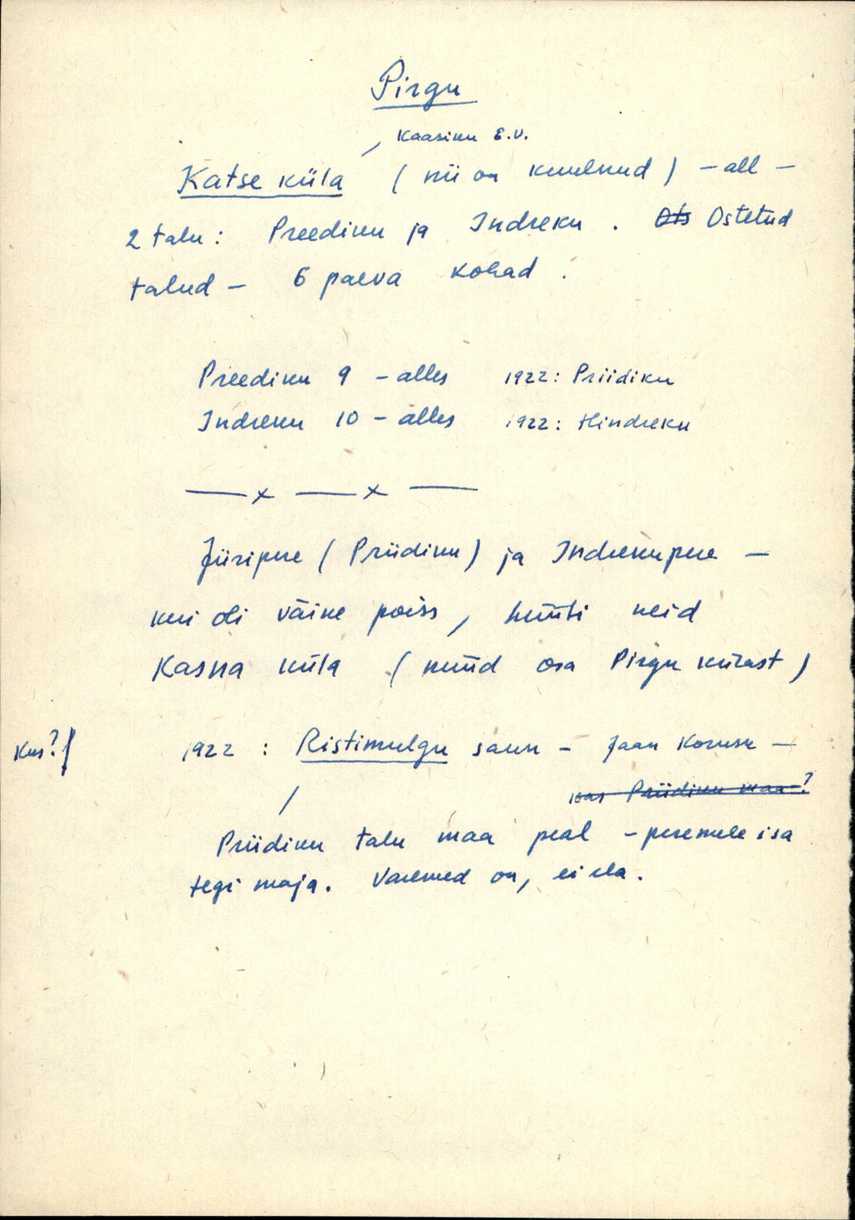 Pirgu
Kaasiku E.V.
Katse küla (nii on kuulnud) – all –
2 talu: Preediku ja Indreku. Ots Ostetud
talud – 6 päeva kohad.
Preediku 9 – alles 1922: Priidiku
Indreku 10 – alles 1922: Hindreku
—x —x —
Jüripere (Priidiku) ja Indrekupere –
kui oli väike poiss, hüüti neid
Kasna küla (nüüd osa Pirgu külast)
Kus? 1922: Ristimulgu saun – Jaan Koruse –
kas Priidiku maa?
Priidiku talu maa peal – peremehe isa
tegi maja. Varemed on, ei ela.